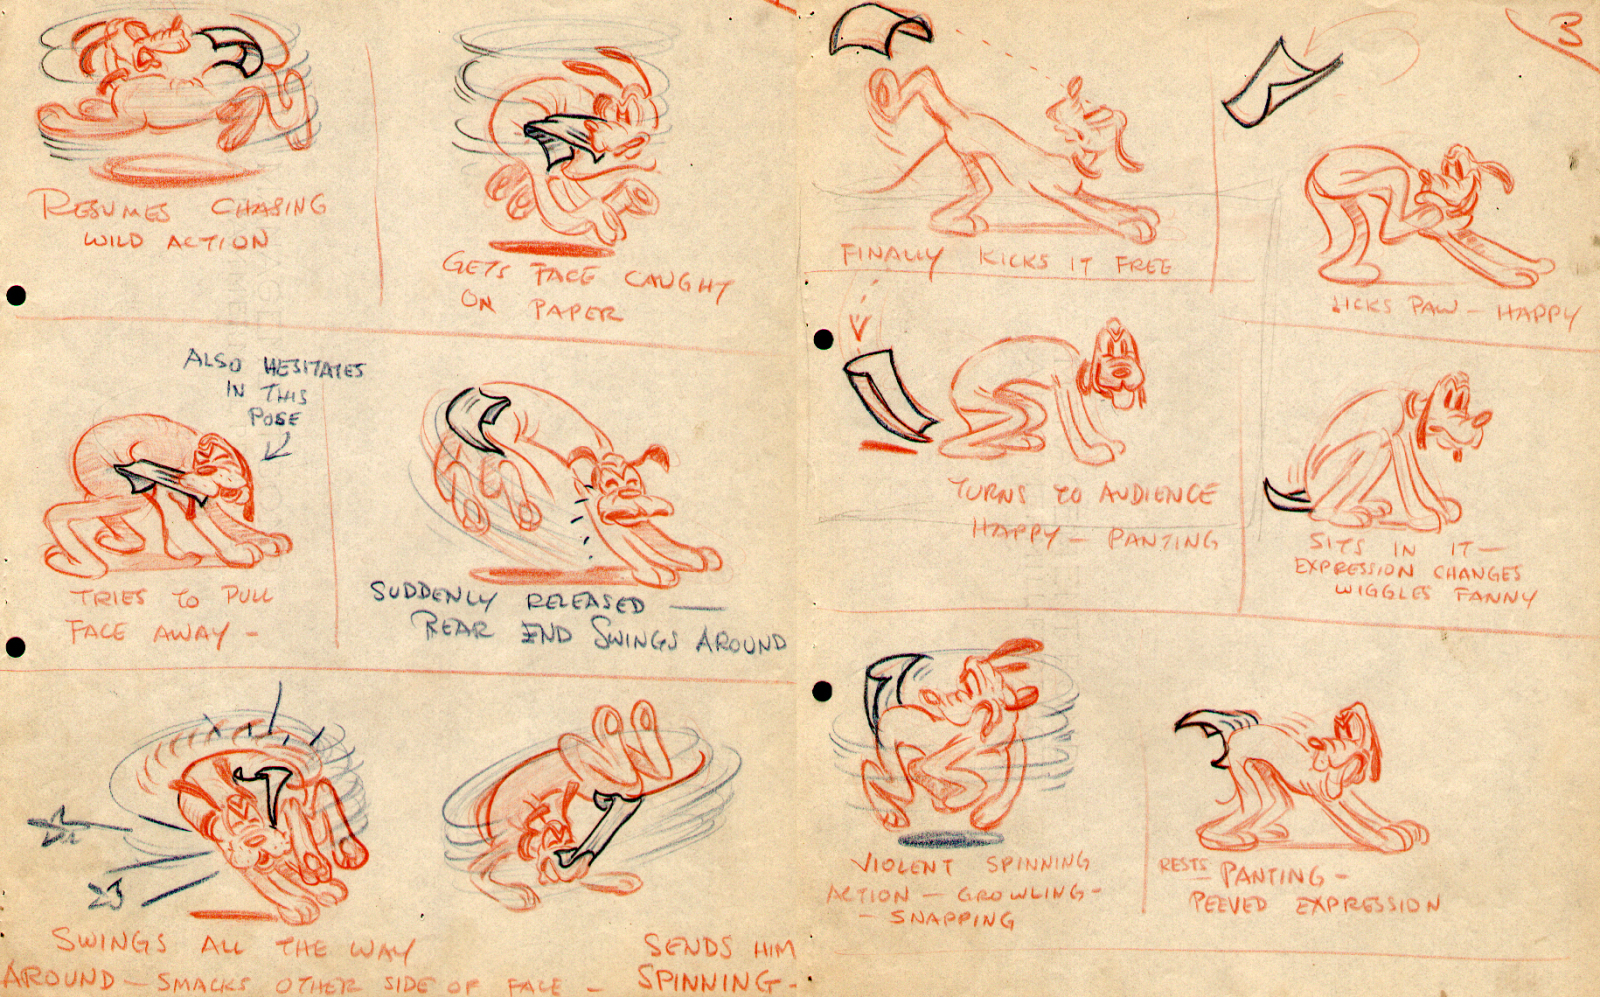 RESUMES CHASING
WILD ACTION
GETS FACE CAUGHT
ON PAPER
ALSO HESITATES
IN THIS
POSE
TRIES TO PULL
FACE AWAY -
SUDDENLY RELEASED —
REAR END SWINGS AROUND
SWINGS ALL THE WAY
AROUND — SMACKS OTHER SIDE OF FACE -
SENDS HIM
SPINNING -
3
FINALLY KICKS IT FREE
LICKS PAW - HAPPY
TURNS TO AUDIENCE
HAPPY - PANTING
SITS IN IT -
EXPRESSION CHANGES
WIGGLES FANNY
VIOLENT SPINNING
ACTION - GROWLING -
- SNAPPING
RESTS PANTING -
PEEVED EXPRESSION